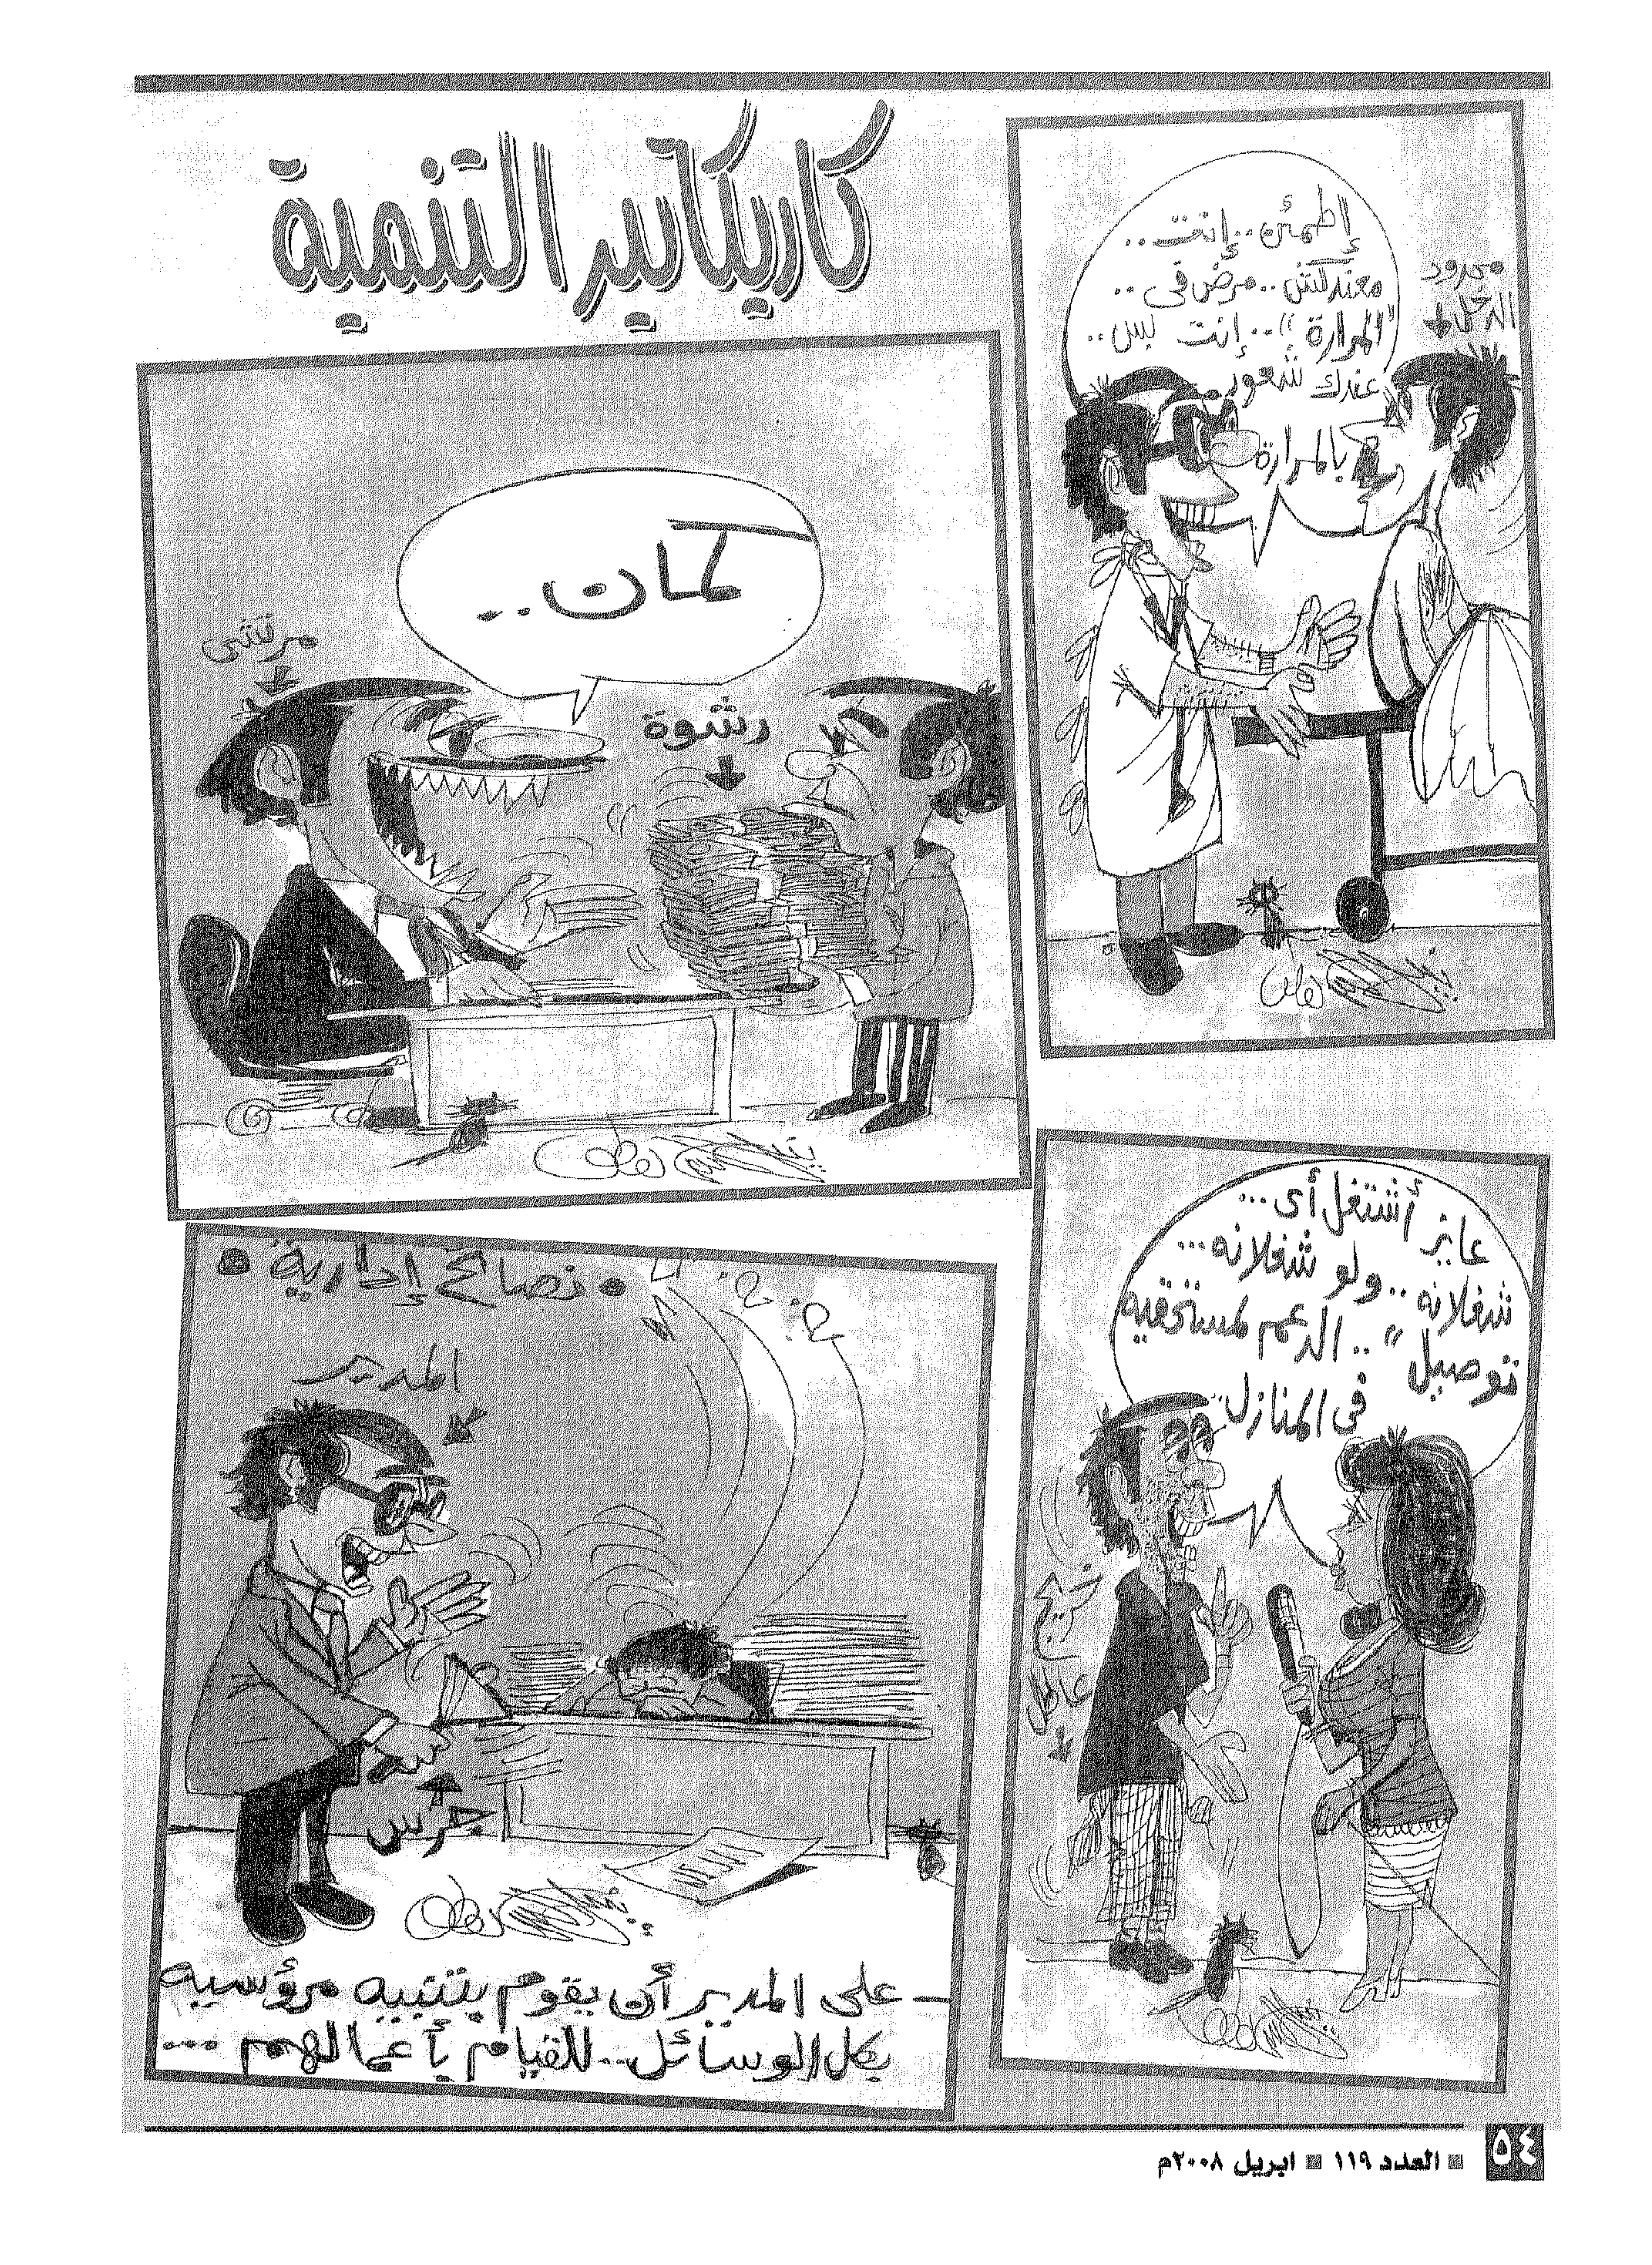 كاريكاتير التنمية
محدود
الدخل
إطمئن..إنت..
معندكش..مرض فى..
"المرارة"..إنت بس..
عندك شعور
بالمرارة
كمان..
مرتشى
رشوة
عايز أشتغل أى...
شغلانه..ولو شغلانه...
توصيل "..الدعم لمستحقيه
فى المنازل..
خريج
عاطل
• نصائح إدارية •
المدير
جرس
- على المدير أن يقوم بتنبيه مرؤسيه
بكل الوسائل..للقيام بأعمالهم ...
٥٤ ■ العدد ١١٩ ■ ابريل ٢٠٠٨م